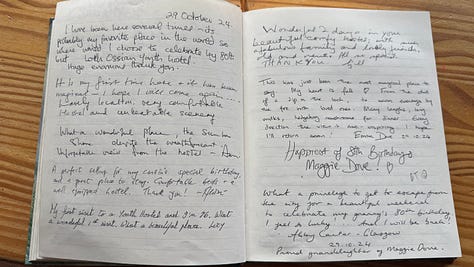 29 October 24.
I have been here several times - its
probably my favorite place in the world so
when would I choose to celebrate my 80th
but Loch Ossian Youth Hostel.
Huge enormous thank you.
It is my first time here & it has been
magical - I hope I will come again
Lovely location, very comfortable
Hostel and unbeatable scenery
What a wonderful place, the
Shone despite the weather
view from the hostel -
A perfect setup for my special birthday,
and a great place to stay. Comfortable beds - a
well equipped hostel. Thank you!
My first visit to a Youth Hostel and I'm 76. What
a wonderful visit. What a beautiful place. Lizy
Wonderful 2 days in your
beautiful comfy hostel with
fabulous family and lovely friends
old and new. All
THANK YOU
This has just been the most magical place to
stay. My heart is full From the
of a dip in the loch, to warm evenings by
the fire with loved ones. Many laughs, long
walks, hedgehog mushrooms for dinner. Every
direction the view is awe-inspiring. I hope
I'll return soon! Emma Dove 29.10.24
Happiest of 80th Birthdays
Maggie Dove!
What a privilege to get to escape from
the city for a beautiful weekend
to celebrate my granny's 80th birthday
I feel so lucky ... And I will be back!
Abby Cantlar - Glasgow
29.10.24
Proud granddaughter of Maggie Dove.